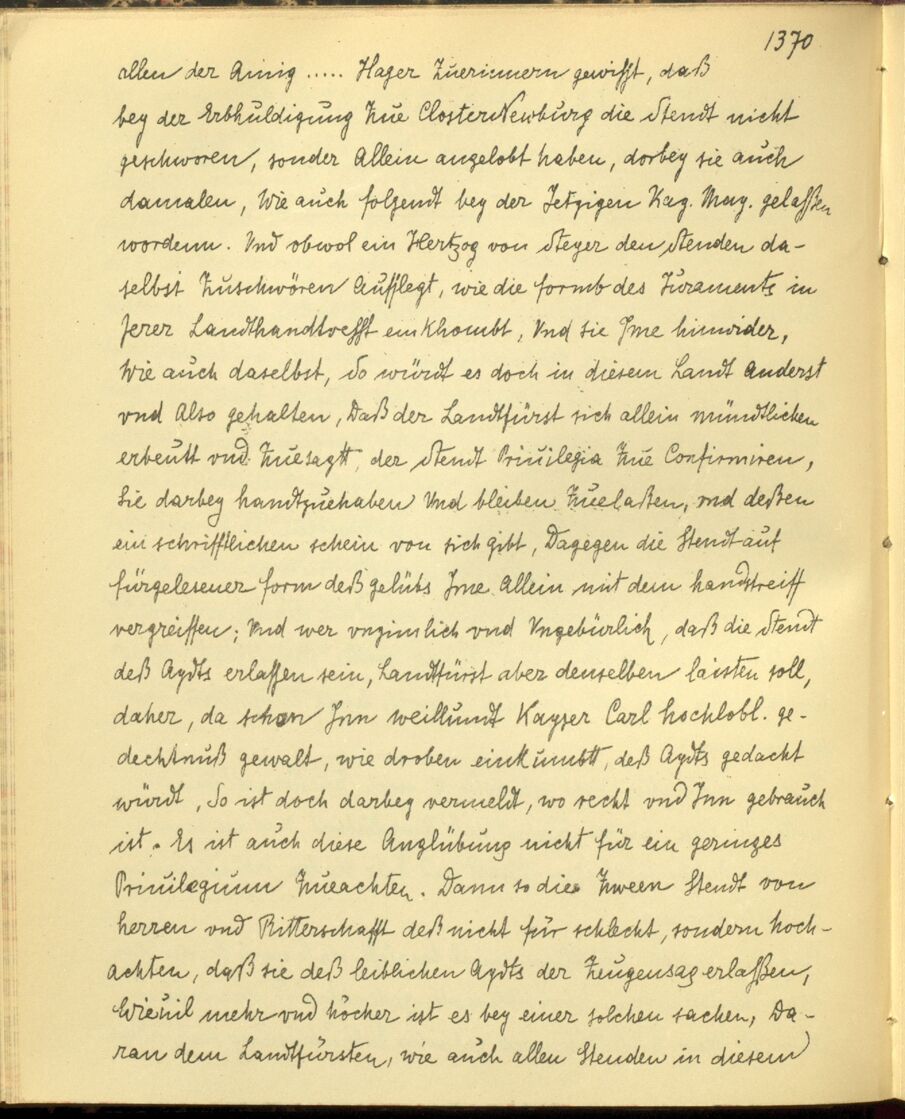 1370
allen der Ainig ..... Hager Zuerinnern gewisst, daß
bey der Erbhuldigung Zue ClosterNewburg die Stendt nicht
geschworen, sonder Allein angelobt haben, dorbey sie auch
damalen, Wie auch folgendt bey der Jetzigen Kay. May. gelaßen
wordenn. Vnd obwol ein Hertzog von Steyer den Stenden da-
selbst Zuschwören Aufflegt, wie die formb des Juraments in
Jerer Landthandtvesst einkhombt, Vnd sie Jme hinwider,
Wie auch daselbst, So würdt es doch in diesem Landt Anderst
vnd Also gehalten, Daß der Landtfürst sich allein mündtlichen
erbeutt vnd Zuesagtt, der Stendt Priuilegia Zue Confirmiren,
Sie darbey handtzuehaben Vnd bleiben Zuelaßen, vnd deßen
ein schrifftlichen schein von sich gibt, Dagegen die Stendt auf
fürgelesener form deß gelübs Jme Allein mit dem handtstreiff
vergreiffen; Vnd wer vnzimlich vnd Vngebürlich, daß die Stendt
deß Aydts erlassen sein, Landtfürst aber denselben laisten soll,
daher, da schon Jnn weillundt Kayser Carl hochlobl. ge-
dechtnuß gewalt, wie droben einkumbtt, deß Aydts gedacht
würdt, So ist doch darbey vermeldt, wo recht vnd Jnn gebrauch
ist. Es ist auch diese Anglübung nicht für ein geringes
Priuilegium Zueachten. Dann so die Zween Stendt von
herren vnd Ritterschafft deß nicht für schlecht, sondern hoch-
achten, daß sie deß leiblichen Aydts der Zeugensag erlaßen,
Wieuil mehr vnd höcher ist es bey einer solchen sachen, Da-
ran dem Landtfürsten, wie auch allen Stenden in diesem